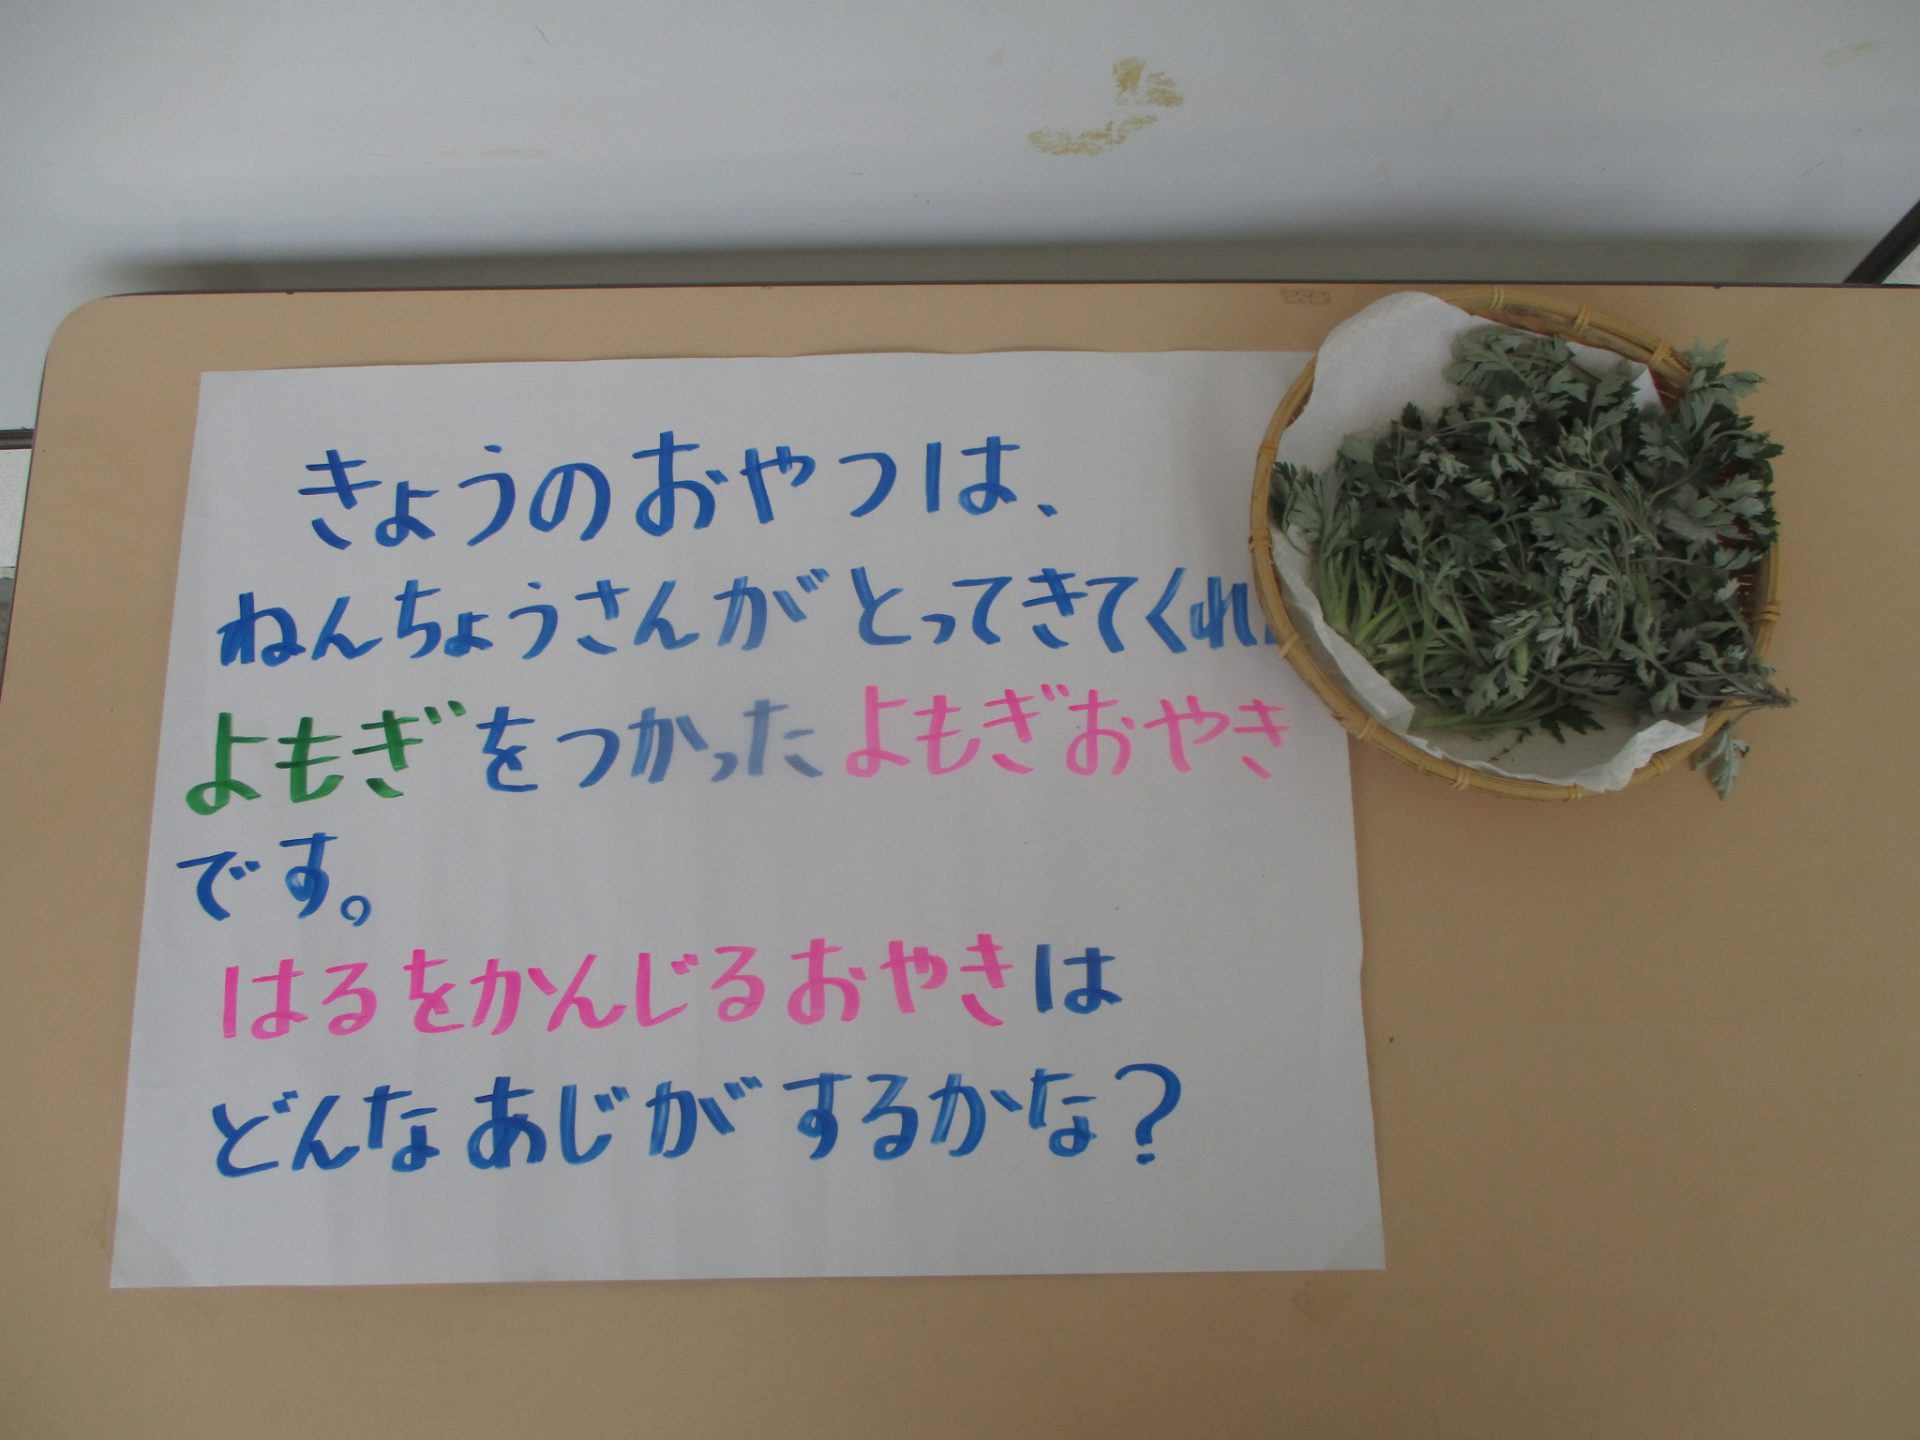 きょうのおやつは、
ねんちょうさんがとってきてくれ
よもぎをつかったよもぎおやき
です。
はるをかんじるおやきは
どんなあじがするかな？